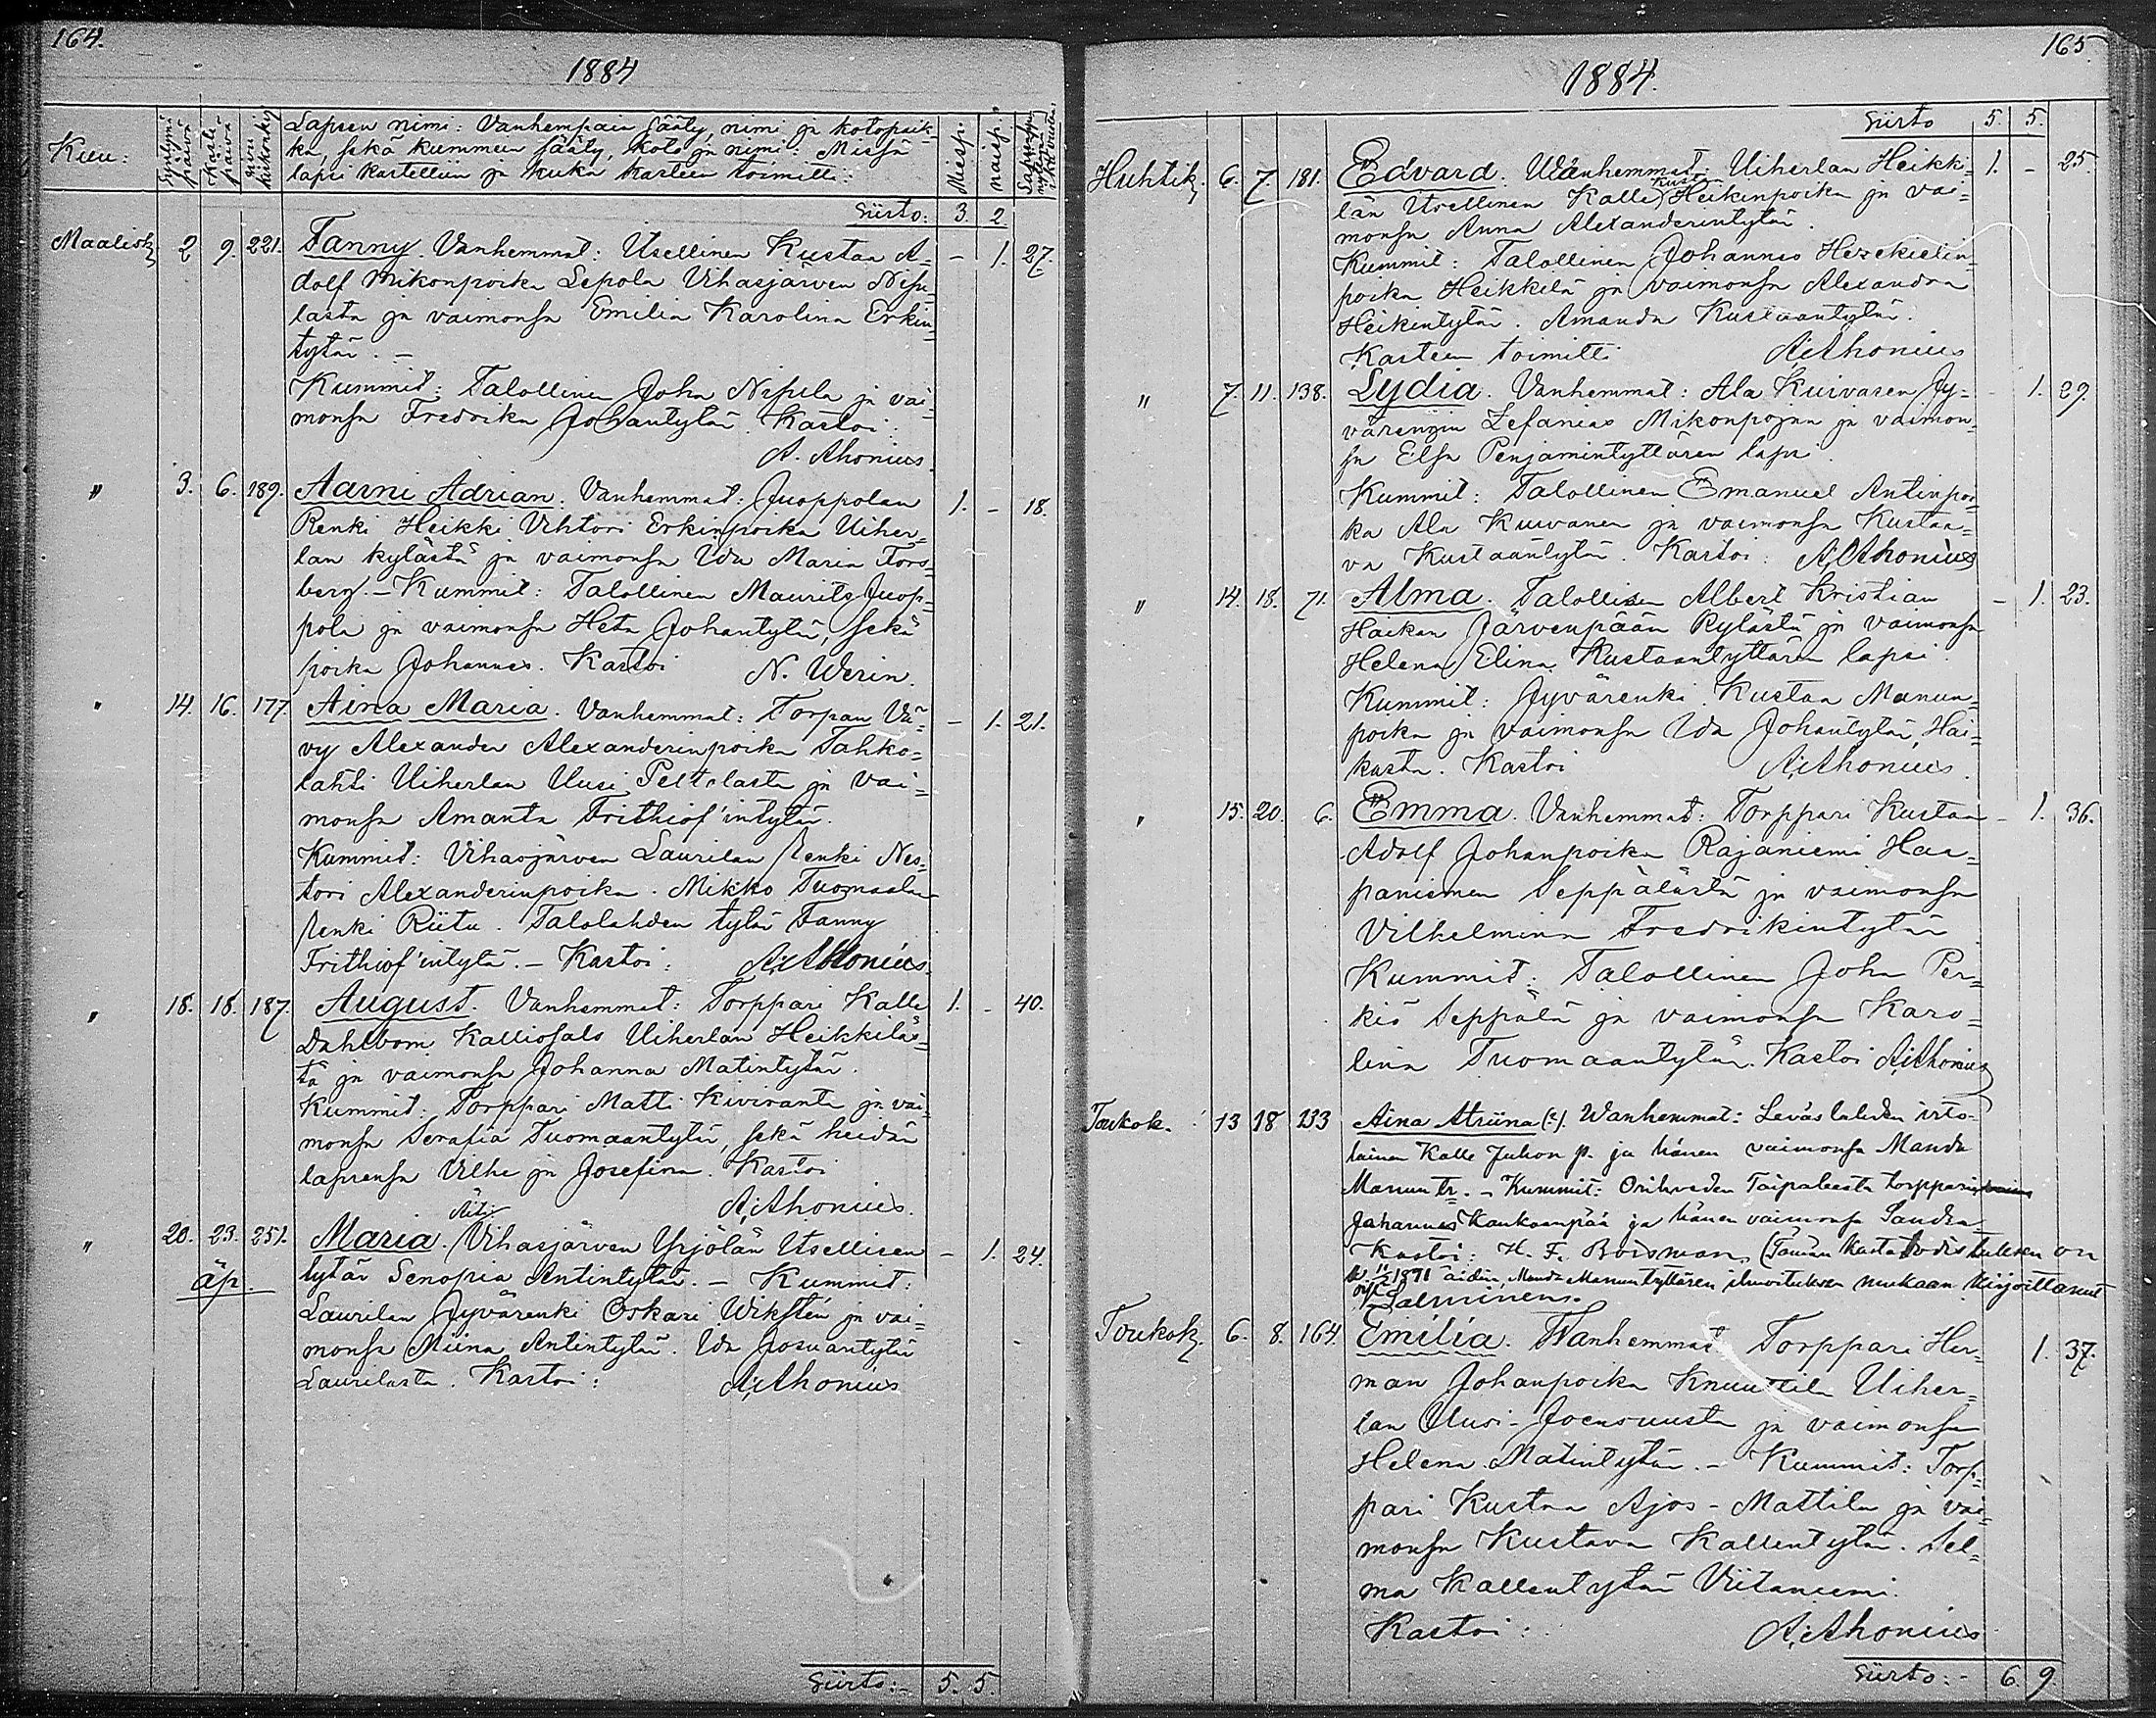 164.
1884
Kuu:
Syntymä päivä
Kaste päivä
Sivu
Lapsen nimi: Vanhempain sääty, nimi ja kotopaik-
ka, sekä kummein sääty, koto ja nimi: Missä
lapsi kastettiin ja kuka kasteen toimitti:
Miesp.
naisp.
Siirto: 3. 2
Maalisk. 2 9. 221. Fanny. Vanhemmat: Itsellinen Kustaa A- - 1. 27.
dolf Mikonpoika Lepola Vihasjärven Nipu-
lasta ja vaimonsa Emilia Karolina Erkin-
tytär. -
Kummit: Talollinen Joha Nipula ja vai-
monsa Fredrika Johantytär. Kastoi:
A. Ahonius
" 3. 6. 189. Aarni Adrian. Vanhemmat: Juoppolan 1. - 18.
Renki Heikki Vihtori Erkinpoika Uiher-
lan kylästä ja vaimonsa Ida Maria Fors-
berg. - Kummit: Talollinen Maurits Juop-
pola ja vaimonsa Heta Johantytär, sekä
poika Johannes. Kastoi N. Werin.
" 14. 16. 177. Aina Maria. Vanhemmat: Torpan Vä- - 1. 21.
vy Alexander Alexanderinpoika Tahko-
lahti Uiherlan Uusi Peltolasta ja vai-
monsa Amanta Frithiof'intytär.
Kummit: Vihasjärven Laurilan Renki Nes-
tori Alexanderinpoika. Mikko Tuomaalan
Renki Riitu. Talolahden tytär Fanny
Frithiof'intytär. - Kastoi: A. Ahonius.
" 18. 18. 187. August. Vanhemmat: Torppari Kalle 1. - 40.
Dahlbom Kalliosalo Uiherlan Heikkiläs-
tä ja vaimonsa Johanna Matintytär.
Kummit: Torppari Matti Kiviranta ja vai-
monsa Serafia Tuomaantytär, sekä heidän
lapsensa Vilhe ja Josefina. Kastoi
A. Ahonius.
Äiti
" 20. 23. 251. Maria. Vihasjärven Yrjölän Itsellisen - 1. 24.
äp. tytär Senopia Antintytär. - Kummit:
Laurilan Jyvärenki Oskari Wikstén ja vai-
monsa Miina Antintytär. Ida Josuantytär
Laurilasta. Kastoi: A. Ahonius
Siirto:- 5. 5.
165.
1884.
Siirto 5. 5.
Huhtik. 6. 7. 181. Edvard. Wanhemmat: Uiherlan Heikki- 1. - 25.
län Itsellinen Kalle Kust. Heikinpoika ja vai-
monsa Anna Alexanderintytär.
Kummit: Talollinen Johannes Hesekielin-
poika Heikkilä ja vaimonsa Alexandra
Heikintytär. Amanda Kustaantytär.
Kasteen toimitti A. Ahonius
" 7. 11. 138. Lydia. Vanhemmat: Ala Kuivasen Jy- - 1. 29.
värengin Zefanias Mikonpojan ja vaimon-
sa Elsa Penjamintyttären lapsi.
Kummit: Talollinen Emanuel Antinpoi-
ka Ala Kuivanen ja vaimonsa Kustaa-
va Kustaantytär. Kastoi: A. Ahonius
" 14. 18. 71. Alma. Talollisen Albert Kristian - 1. 23.
Haikan Järvenpään Kylästä ja vaimonsa
Helena Elina Kustaantyttären lapsi.
Kummit: Jyvärenki Kustaa Manun-
poika ja vaimonsa Ida Johantytär, Hai-
kasta. Kastoi A. Ahonius.
" 15. 20. 6. Emma. Vanhemmat: Torppari Kustaa - 1. 36.
Adolf Johanpoika Rajaniemi Haa-
paniemen Seppälästä ja vaimonsa
Vilhelmina Fredrikintytär
Kummit: Talollinen Joha Per-
kiö Seppälä ja vaimonsa Karo-
lina Tuomaantytär. Kastoi A. Ahonius
Toukok. 13 18 233 Aina Atriina (?). Wanhemmat: Leväslahden irto-
lainen Kalle Juhon p. ja hänen vaimonsa Manda
Manun tr. - Kummit: Orihveden Taipaleesta torppari
Johannes Kaukaanpää ja hänen vaimonsa Sandra
Kastoi: H. F. Boisman. (Tämän kastetodistuksen on
11/2 1891 äidin, Manda Manuntyttären ilmoituksen mukaan kirjoittanut
Salminen.
Toukok. 6. 8. 164. Emilia. Wanhemmat Torppari Her- 1. 37.
man Johanpoika Knuuttila Uiher-
lan Uusi-Joensuusta ja vaimonsa
Helena Matintytär. - Kummit: Torp-
pari Kustaa Ajos-Mattila ja vai-
monsa Kustava Kallentytär. Sel-
ma Kallentytär Viitaniemi.
Kastoi: A. Ahonius
Siirto:- 6. 9.